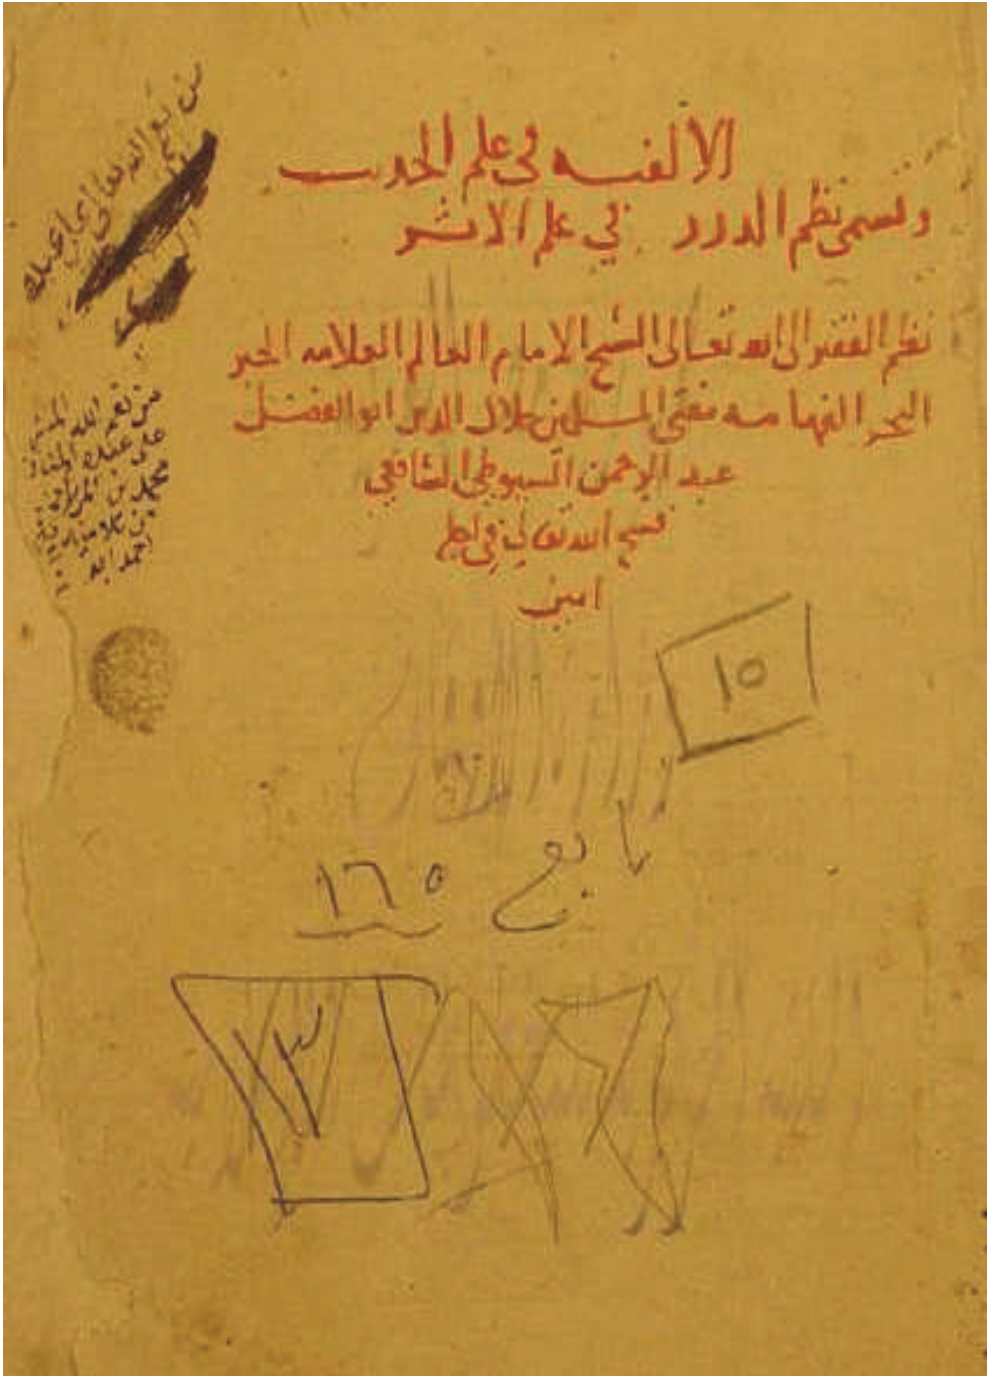 الالفيه في علم الحديث
وتسمى نظم الدرر في علم الاثر
نظم الفقير الى الله تعالى الشيخ الامام العالم العلامه الحبر
البحر الفهامه مفتى المسلمين جلال الدين ابو الفضل
عبد الرحمن السيوطي الشافعي
فسح الله تعالى في اجله
امين
من نعم الله تعالى على عبده
من نعم الله
على عبده
محمد بن
احمد
١٥
تابع ١٦٥
١٣